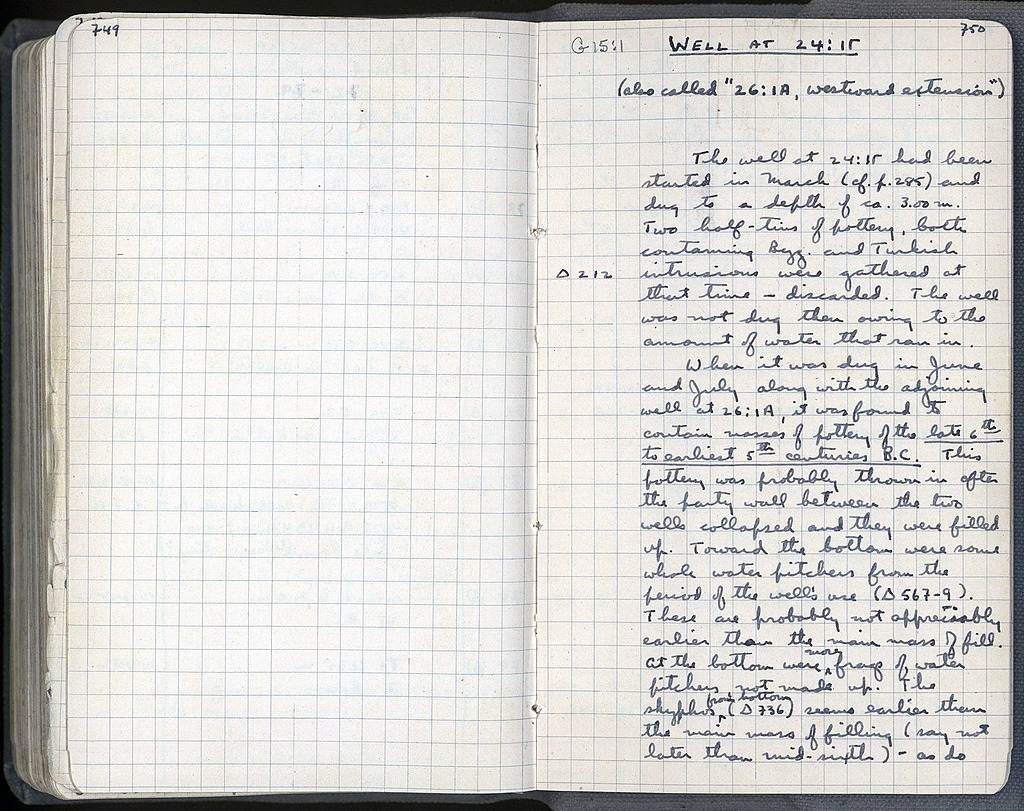 749
750
G 15:1 WELL AT 24:15
(also called "26:1A, westward extension")
The well at 24:15 had been
started in March (cf. p.285) and
dug to a depth of ca. 3.00 m.
Two half-tins of pottery, both
containing Byz. and Turkish
Δ 212 intrusions were gathered at
that time – discarded. The well
was not dug then owing to the
amount of water that ran in.
When it was dug in June
and July along with the adjoining
well at 26:1A, it was found to
contain masses of pottery of the late 6th
to earliest 5th centuries B.C. This
pottery was probably thrown in after
the party wall between the two
wells collapsed and they were filled
up. Toward the bottom were some
whole water pitchers from the
period of the well's use (Δ 567-9).
These are probably not appreciably
earlier than the main mass of fill.
At the bottom were more frags of water
pitchers not made up. The
skyphos from bottom (Δ 736) seems earlier than
the main mass of filling (say not
later than mid-sixth) – as do